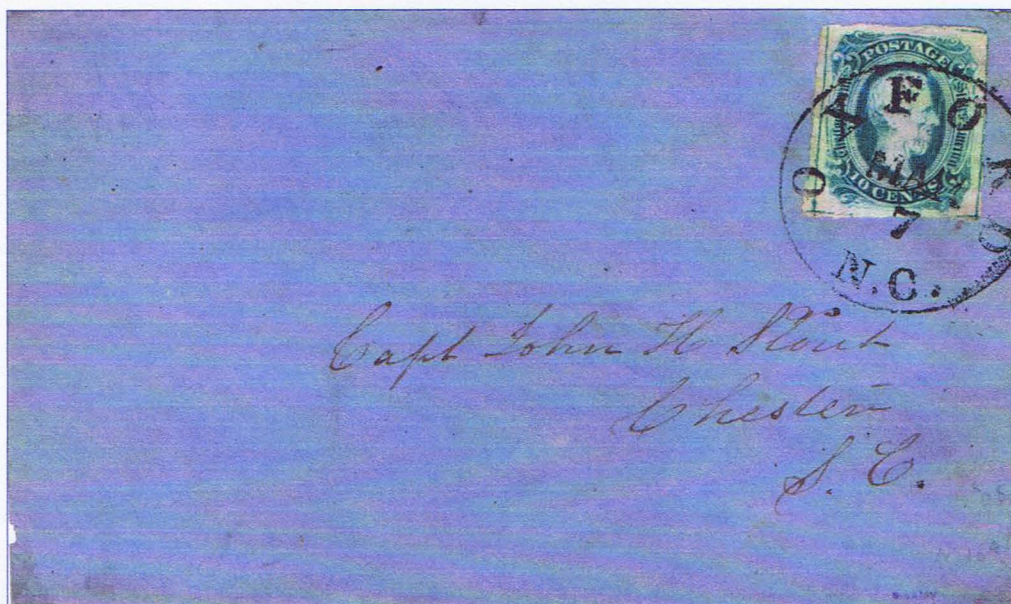 POSTAGE
10 CENTS
OXFORD
MAR
7
N.C.
Capt John H Stout
Chester
S. C.